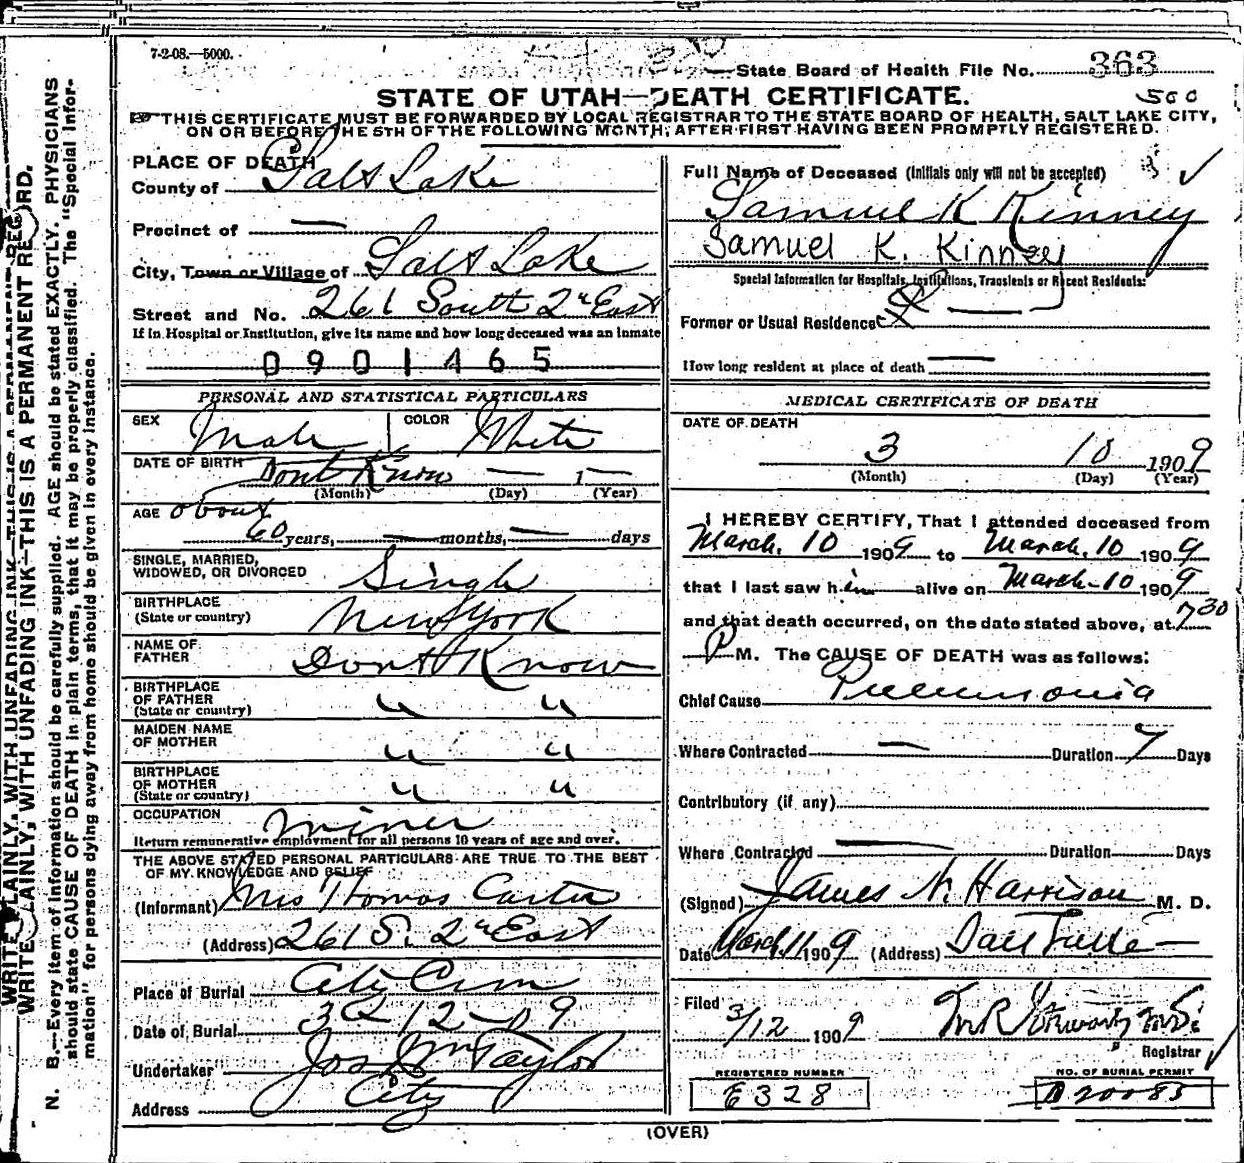 7-2-08.—5000.
State Board of Health File No. 363
STATE OF UTAH—DEATH CERTIFICATE.
500
THIS CERTIFICATE MUST BE FORWARDED BY LOCAL REGISTRAR TO THE STATE BOARD OF HEALTH, SALT LAKE CITY,
ON OR BEFORE THE 5TH OF THE FOLLOWING MONTH, AFTER FIRST HAVING BEEN PROMPTLY REGISTERED.
PLACE OF DEATH
County of Salt Lake
Precinct of —
City, Town or Village of Salt Lake
Street and No. 261 South 2nd East
If in Hospital or Institution, give its name and how long deceased was an inmate
0901465
PERSONAL AND STATISTICAL PARTICULARS
SEX Male COLOR White
DATE OF BIRTH Dont Know — 1—
(Month) (Day) (Year)
AGE about
60 years, — months, — days
SINGLE, MARRIED,
WIDOWED, OR DIVORCED Single
BIRTHPLACE
(State or country) New York
NAME OF
FATHER Dont Know
BIRTHPLACE
OF FATHER
(State or country) " "
MAIDEN NAME
OF MOTHER " "
BIRTHPLACE
OF MOTHER
(State or country) " "
OCCUPATION miner
Return remunerative employment for all persons 10 years of age and over.
THE ABOVE STATED PERSONAL PARTICULARS ARE TRUE TO THE BEST
OF MY KNOWLEDGE AND BELIEF
(Informant) Mrs Thomas Carter
(Address) 261 S. 2nd East
Place of Burial City Cem
Date of Burial 3 12-09
Undertaker Jos Wm Taylor
Address City
Full Name of Deceased (Initials only will not be accepted)
Samuel K Kinney
Samuel K. Kinney
Special Information for Hospitals, Institutions, Transients or Recent Residents:
Former or Usual Residence —
How long resident at place of death —
MEDICAL CERTIFICATE OF DEATH
DATE OF DEATH
3 10 1909
(Month) (Day) (Year)
I HEREBY CERTIFY, That I attended deceased from
March. 10 1909 to March. 10 1909
that I last saw him alive on March-10 1909
and that death occurred, on the date stated above, at 7 30
P M. The CAUSE OF DEATH was as follows:
Chief Cause Pneumonia
Where Contracted — Duration 7 Days
Contributory (if any)
Where Contracted — Duration Days
(Signed) James N. Harrison M. D.
Date March 11 1909 (Address)
Filed 3/12 1909
Registrar
REGISTERED NUMBER
E 328
NO. OF BURIAL PERMIT
D20085
(OVER)
WRITE PLAINLY, WITH UNFADING INK—THIS IS A PERMANENT RECORD.
N. B.—Every item of information should be carefully supplied. AGE should be stated EXACTLY. PHYSICIANS
should state CAUSE OF DEATH in plain terms, that it may be properly classified. The "Special Infor-
mation" for persons dying away from home should be given in every instance.